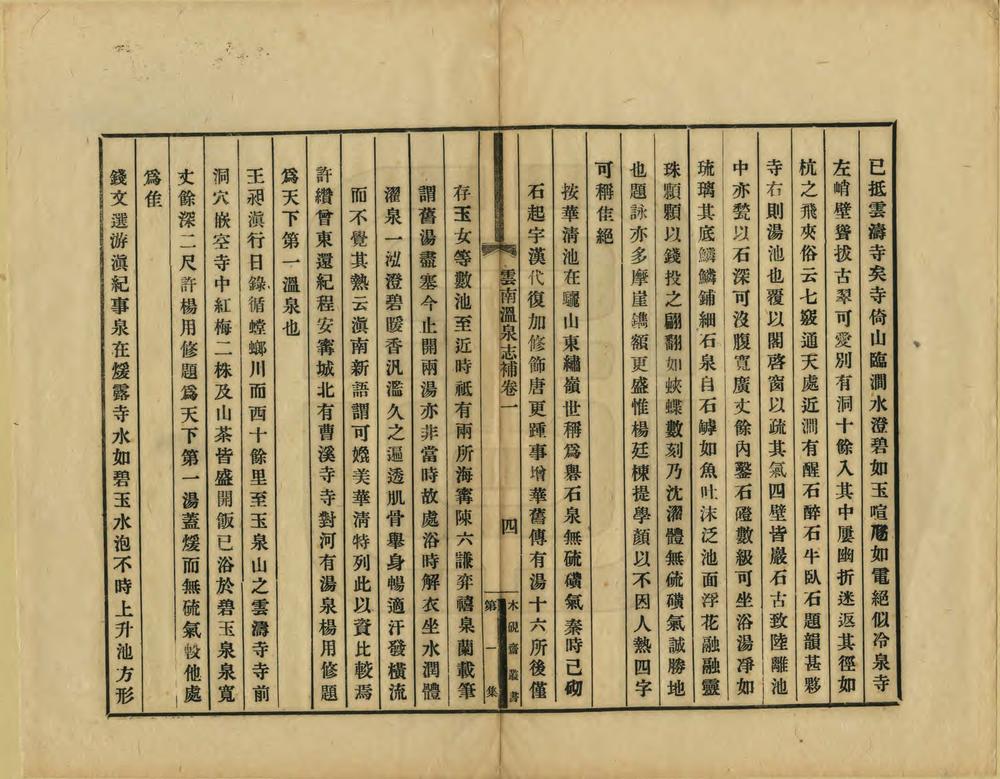 已抵雲濤寺矣寺倚山臨澗水澄碧如玉喧豗如電絕似冷泉寺
左峭壁聳拔古翠可愛別有洞十餘入其中屢幽折迷返其徑如
杭之飛來俗云七竅通天處近澗有醒石醉石牛臥石題韻甚夥
寺右則湯池也覆以閣啓窗以疏其氣四壁皆巖石古致陸離池
中亦甃以石深可沒腹寬廣丈餘內鑿石磴數級可坐浴湯凈如
琉璃其底鱗鱗鋪細石泉自石罅如魚吐沫泛池面浮花融融靈
珠顆顆以錢投之翩翻如蛺蝶數刻乃沈濯體無硫磺氣誠勝地
也題詠亦多摩崖鐫額更盛惟楊廷棟提學顏以不因人熱四字
可稱佳絕
按華清池在驪山東繡嶺世稱爲礜石泉無硫磺氣秦時已砌
石起宇漢代復加修飾唐更踵事增華舊傳有湯十六所後僅
雲南溫泉志補卷一
四
木硯齋叢書
第一集
存玉女等數池至近時祇有兩所海寗陳六謙弈禧泉蘭載筆
謂舊湯盡塞今止開兩湯亦非當時故處浴時解衣坐水潤體
濯泉一泓澄碧暖香汎濫久之遍透肌骨舉身暢適汗發橫流
而不覺其熱云滇南新語謂可媲美華清特列此以資比較焉
許纘曾東還紀程安寗城北有曹溪寺寺對河有湯泉楊用修題
爲天下第一溫泉也
王昶滇行日錄循螳螂川而西十餘里至玉泉山之雲濤寺寺前
洞穴嵌空寺中紅梅二株及山茶皆盛開飯已浴於碧玉泉泉寬
丈餘深二尺許楊用修題爲天下第一湯蓋煖而無硫氣較他處
爲佳
錢文選游滇紀事泉在煖露寺水如碧玉水泡不時上升池方形